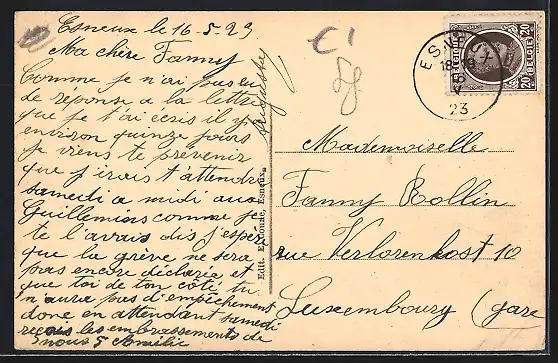 Esneux le 16-5-23
Ma chère Fanny
Comme je n'ai pas eu
de réponse a la lettre
que je t'ai écris il y a
environ quinze jours
je viens te prévenir
que j'irais t'attendre
samedi a midi aux
Guillemins comme je
te l'avais dis j'espère
que la grève ne sera
pas encore déclarée et
que toi de ton côté tu
n'aura pas d'empêchement
donc en attendant samedi
reçois les embrassements de
nous 5 Amélie
Augustine
Edit. Esneux.
BELGIQUE 20 20 BELGIË
ESN
18-19
23
Mademoiselle
Fanny Rollin
rue Verlorenkost 10
Luxembourg (gare